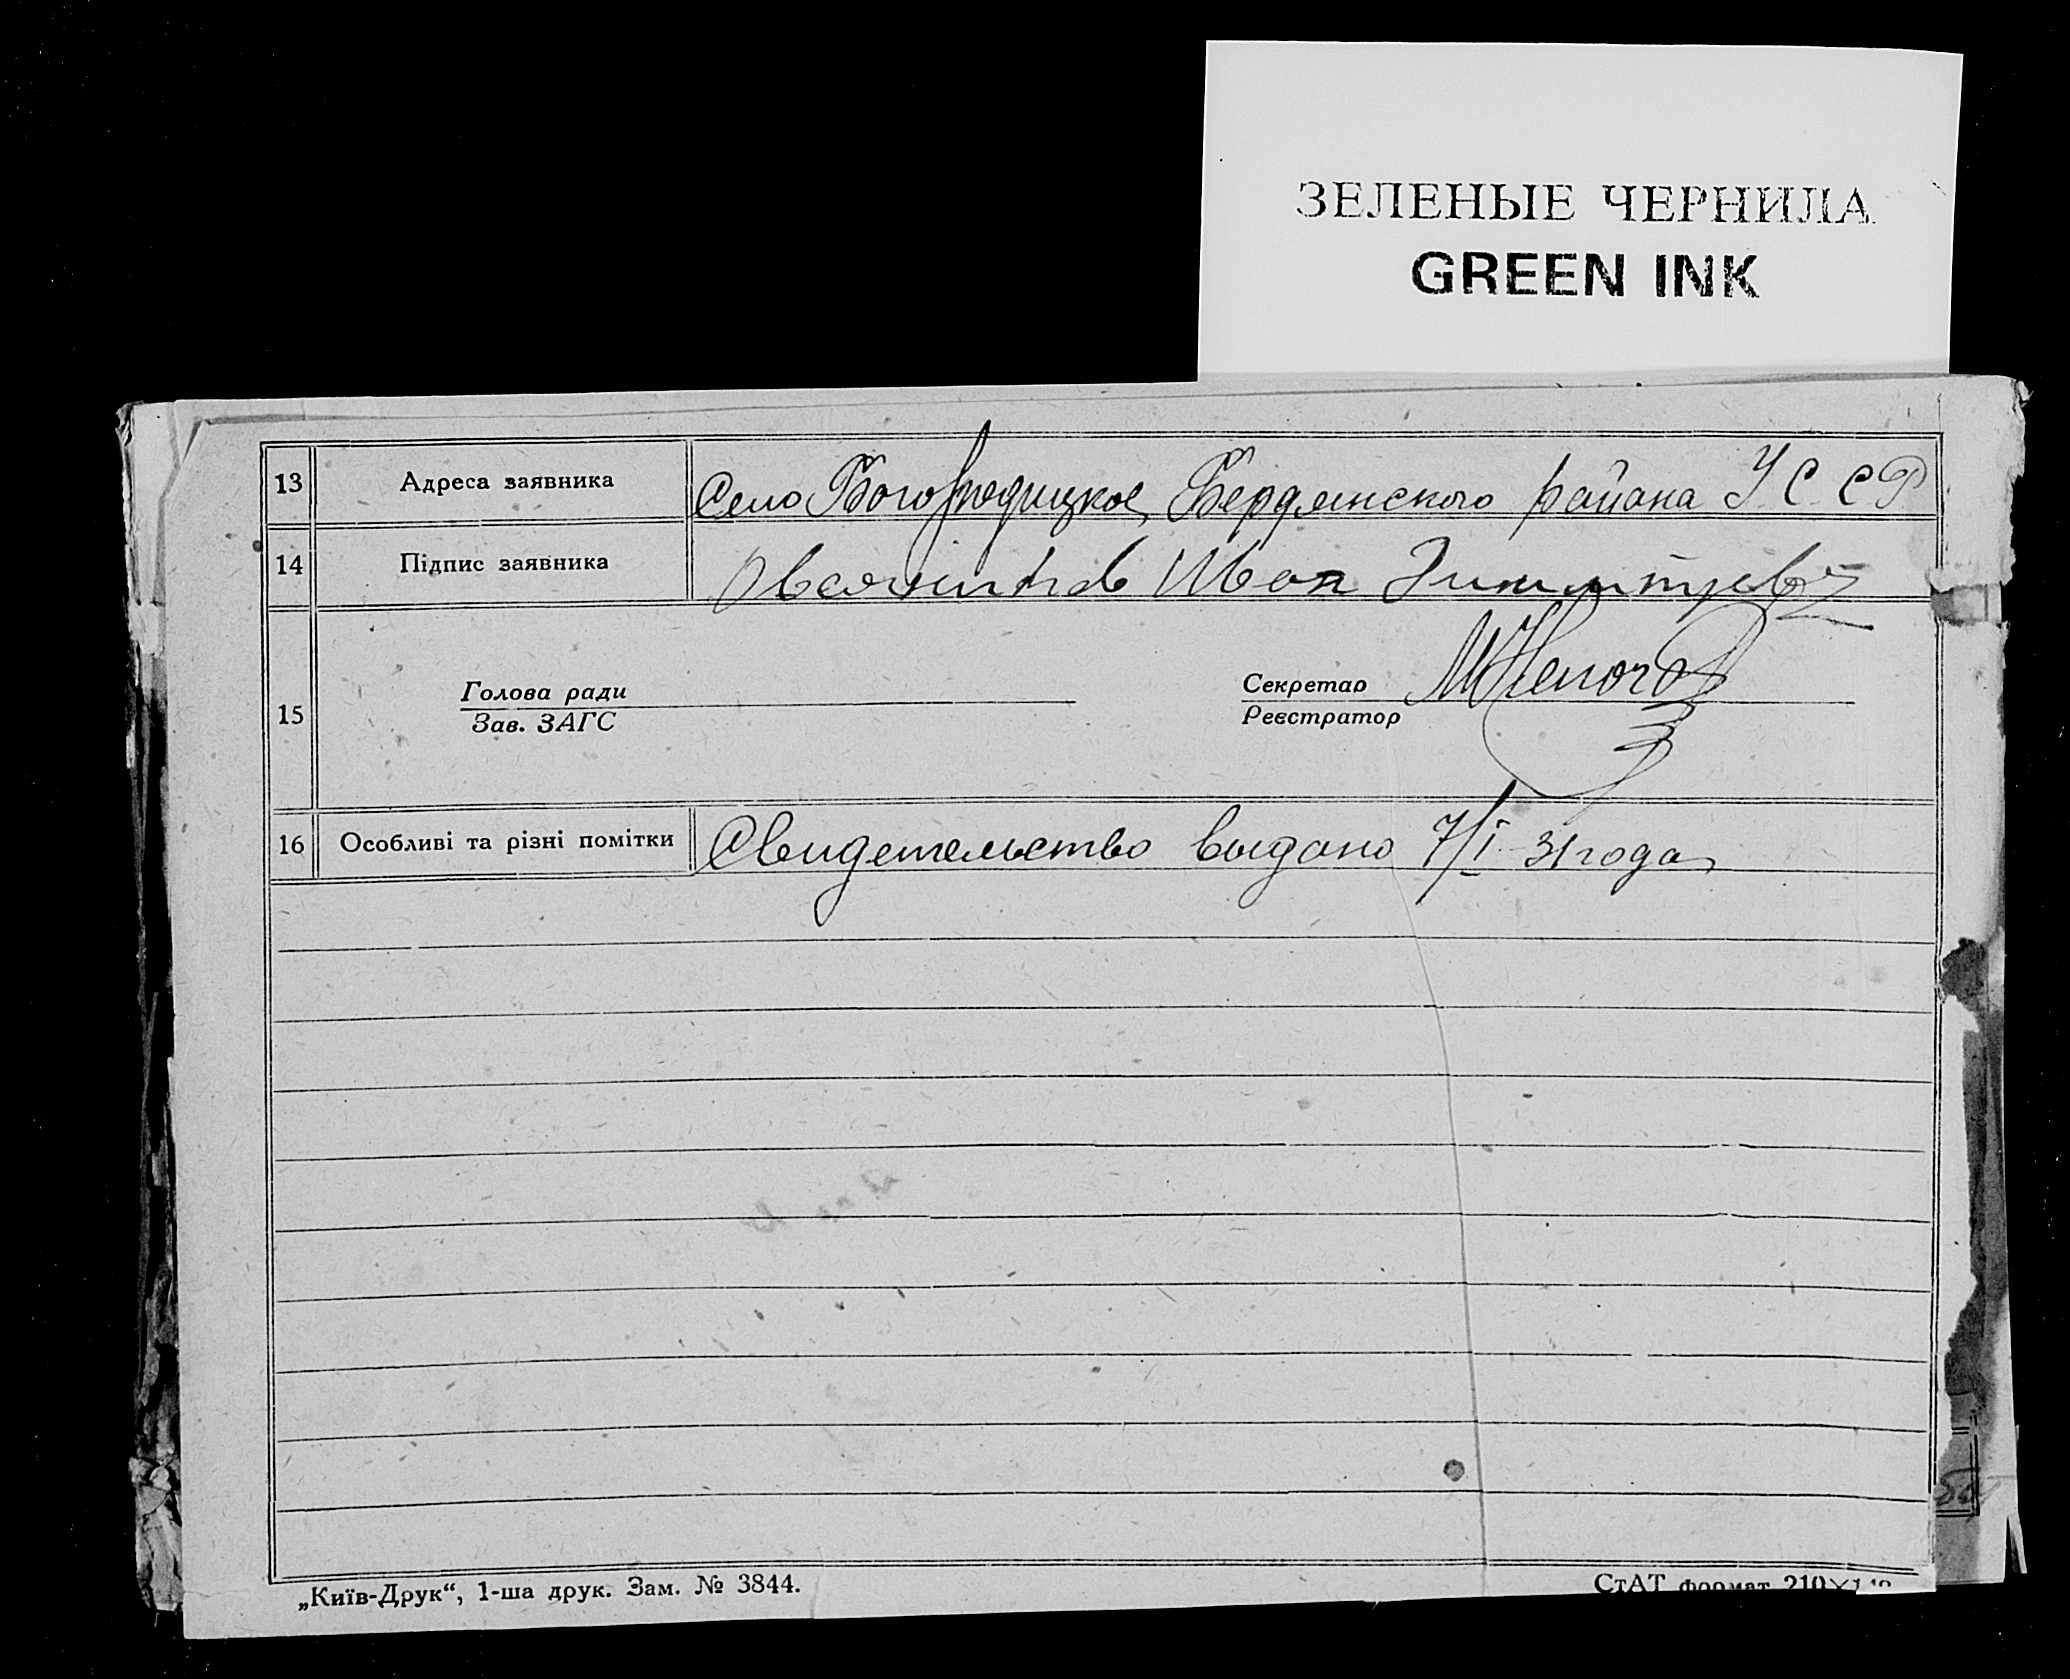 ЗЕЛЕНЫЕ ЧЕРНИЛА
GREEN INK
13 Адреса заявника Село Богородицкое, Бердянского района УССР
14 Підпис заявника Овсянников Иван Димитрев
15 Голова ради Секретар
Зав. ЗАГС Реєстратор
16 Особливі та різні помітки Свидетельство выдано 7/I-31 года
„Київ-Друк“, 1-ша друк. Зам. № 3844.
СтАТ формат 210×